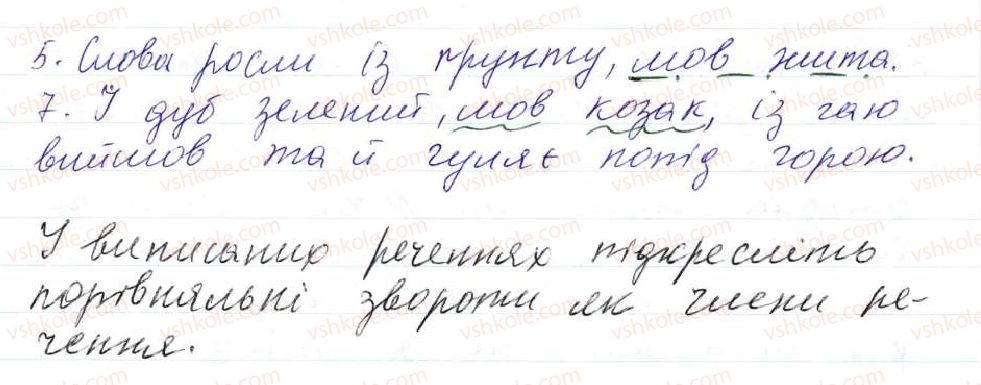 5. Слова росли із ґрунту, мов жита.
7. І дуб зелений, мов козак, із гаю
вийшов та й гуляє попід горою.
У виписаних реченнях підкресліть
порівняльні звороти як члени ре-
чення.